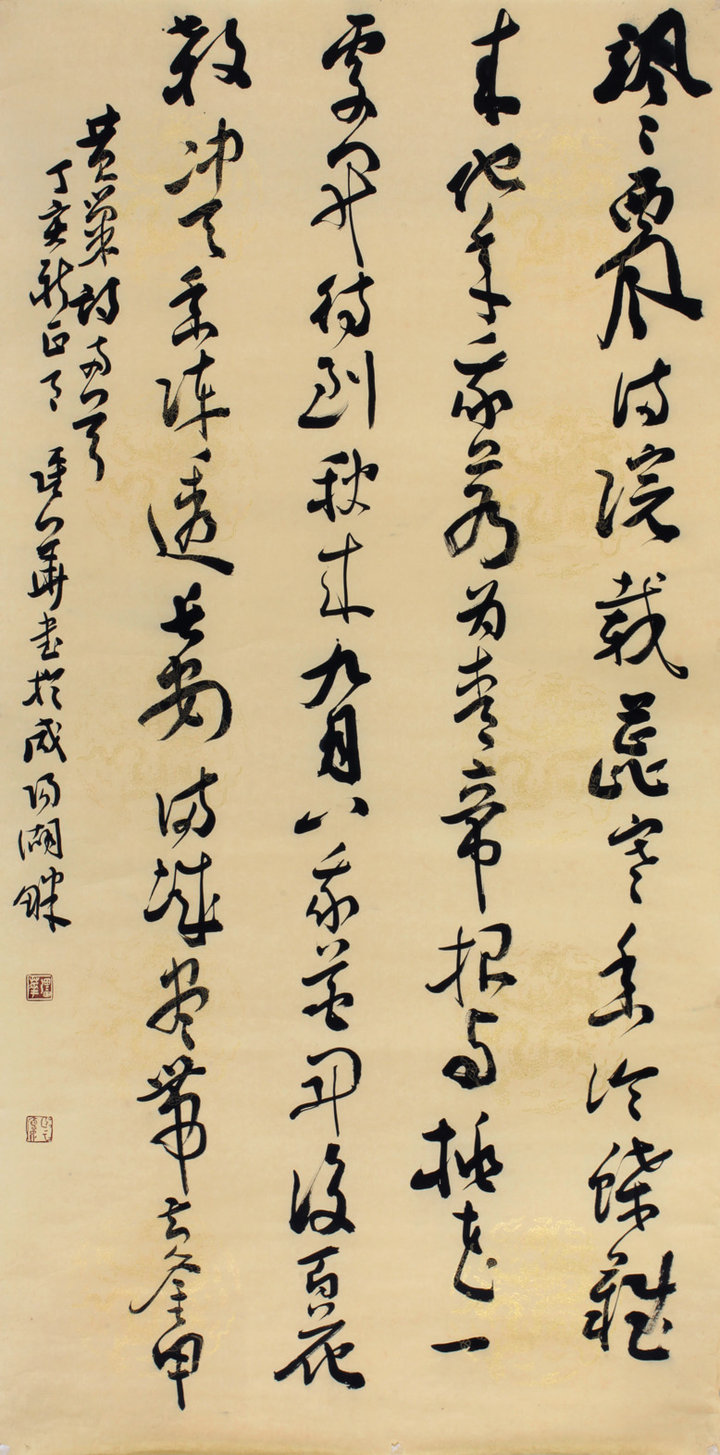 飒〻西风满院栽蕊寒香冷蝶難
来他年我若为青帝报与桃花一
處开待到秋来九月八我花开後百花
殺冲天香阵透长安满城尽带黄金甲
黄巢诗两首
丁亥新正月 华书於咸阳湖畔